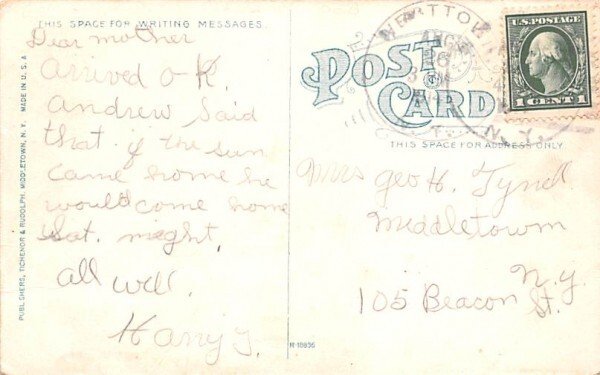 THIS SPACE FOR WRITING MESSAGES
Dear mother
Arrived O-K.
Andrew said
that if the sun
came home he
would come home
Sat. night.
all well.
Harry
PUBLISHERS, TICHENOR & RUDOLPH, MIDDLETOWN, N. Y. MADE IN U. S. A.
POST
CARD
THIS SPACE FOR ADDRESS ONLY
U.S. POSTAGE
1 CENT 1
N.Y.
Mrs Geo H. Tyndl
Middletown
N.Y.
105 Beacon St.
R-18835